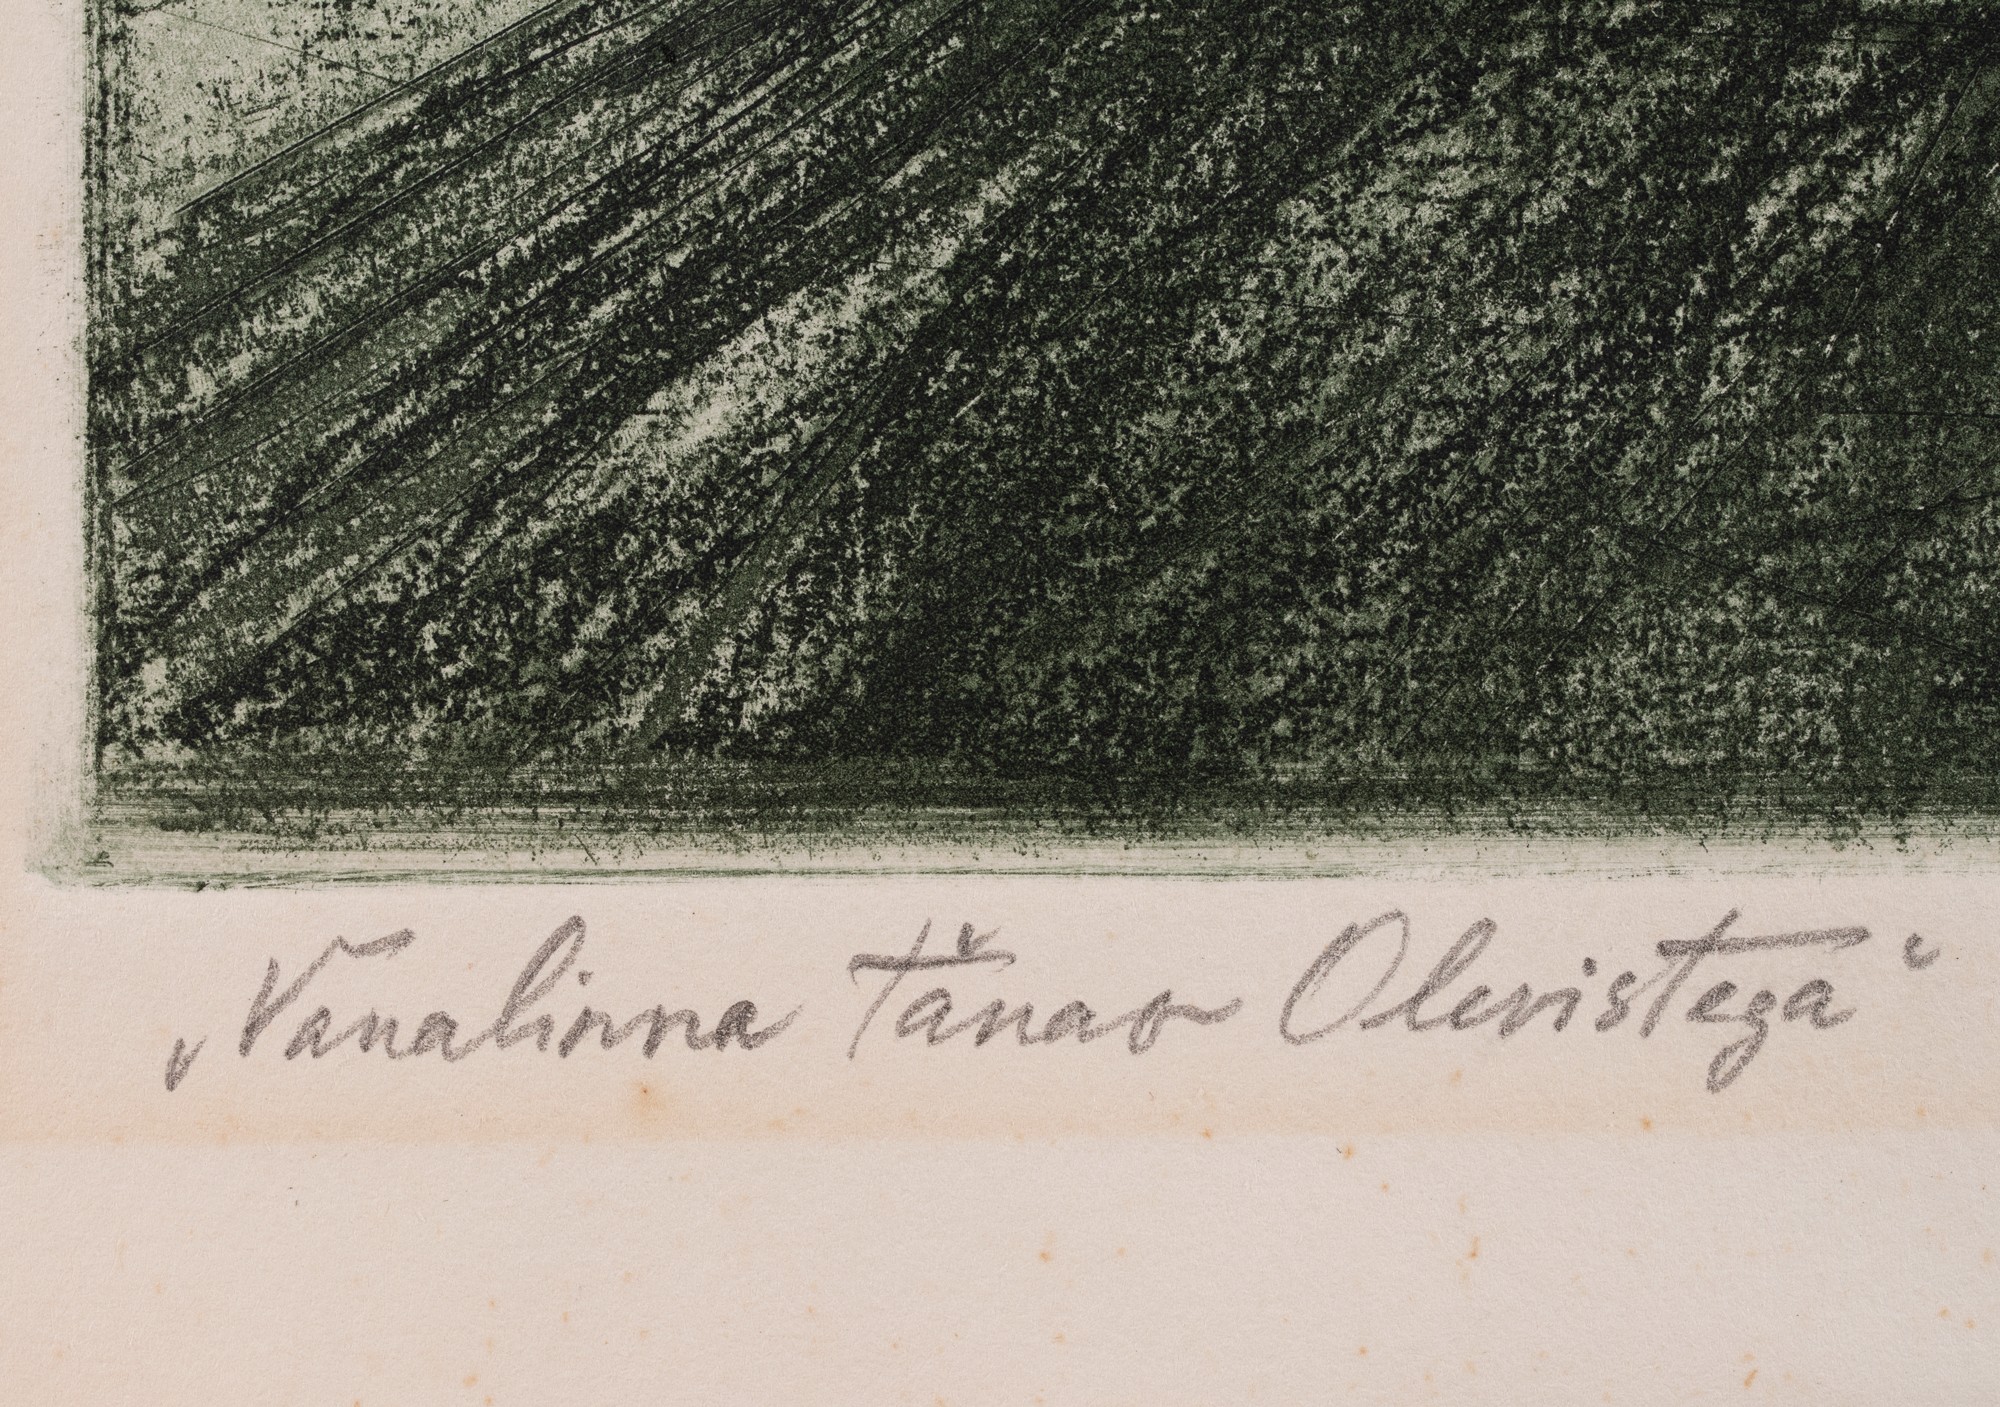 „Vanalinna tänav Olevistega“